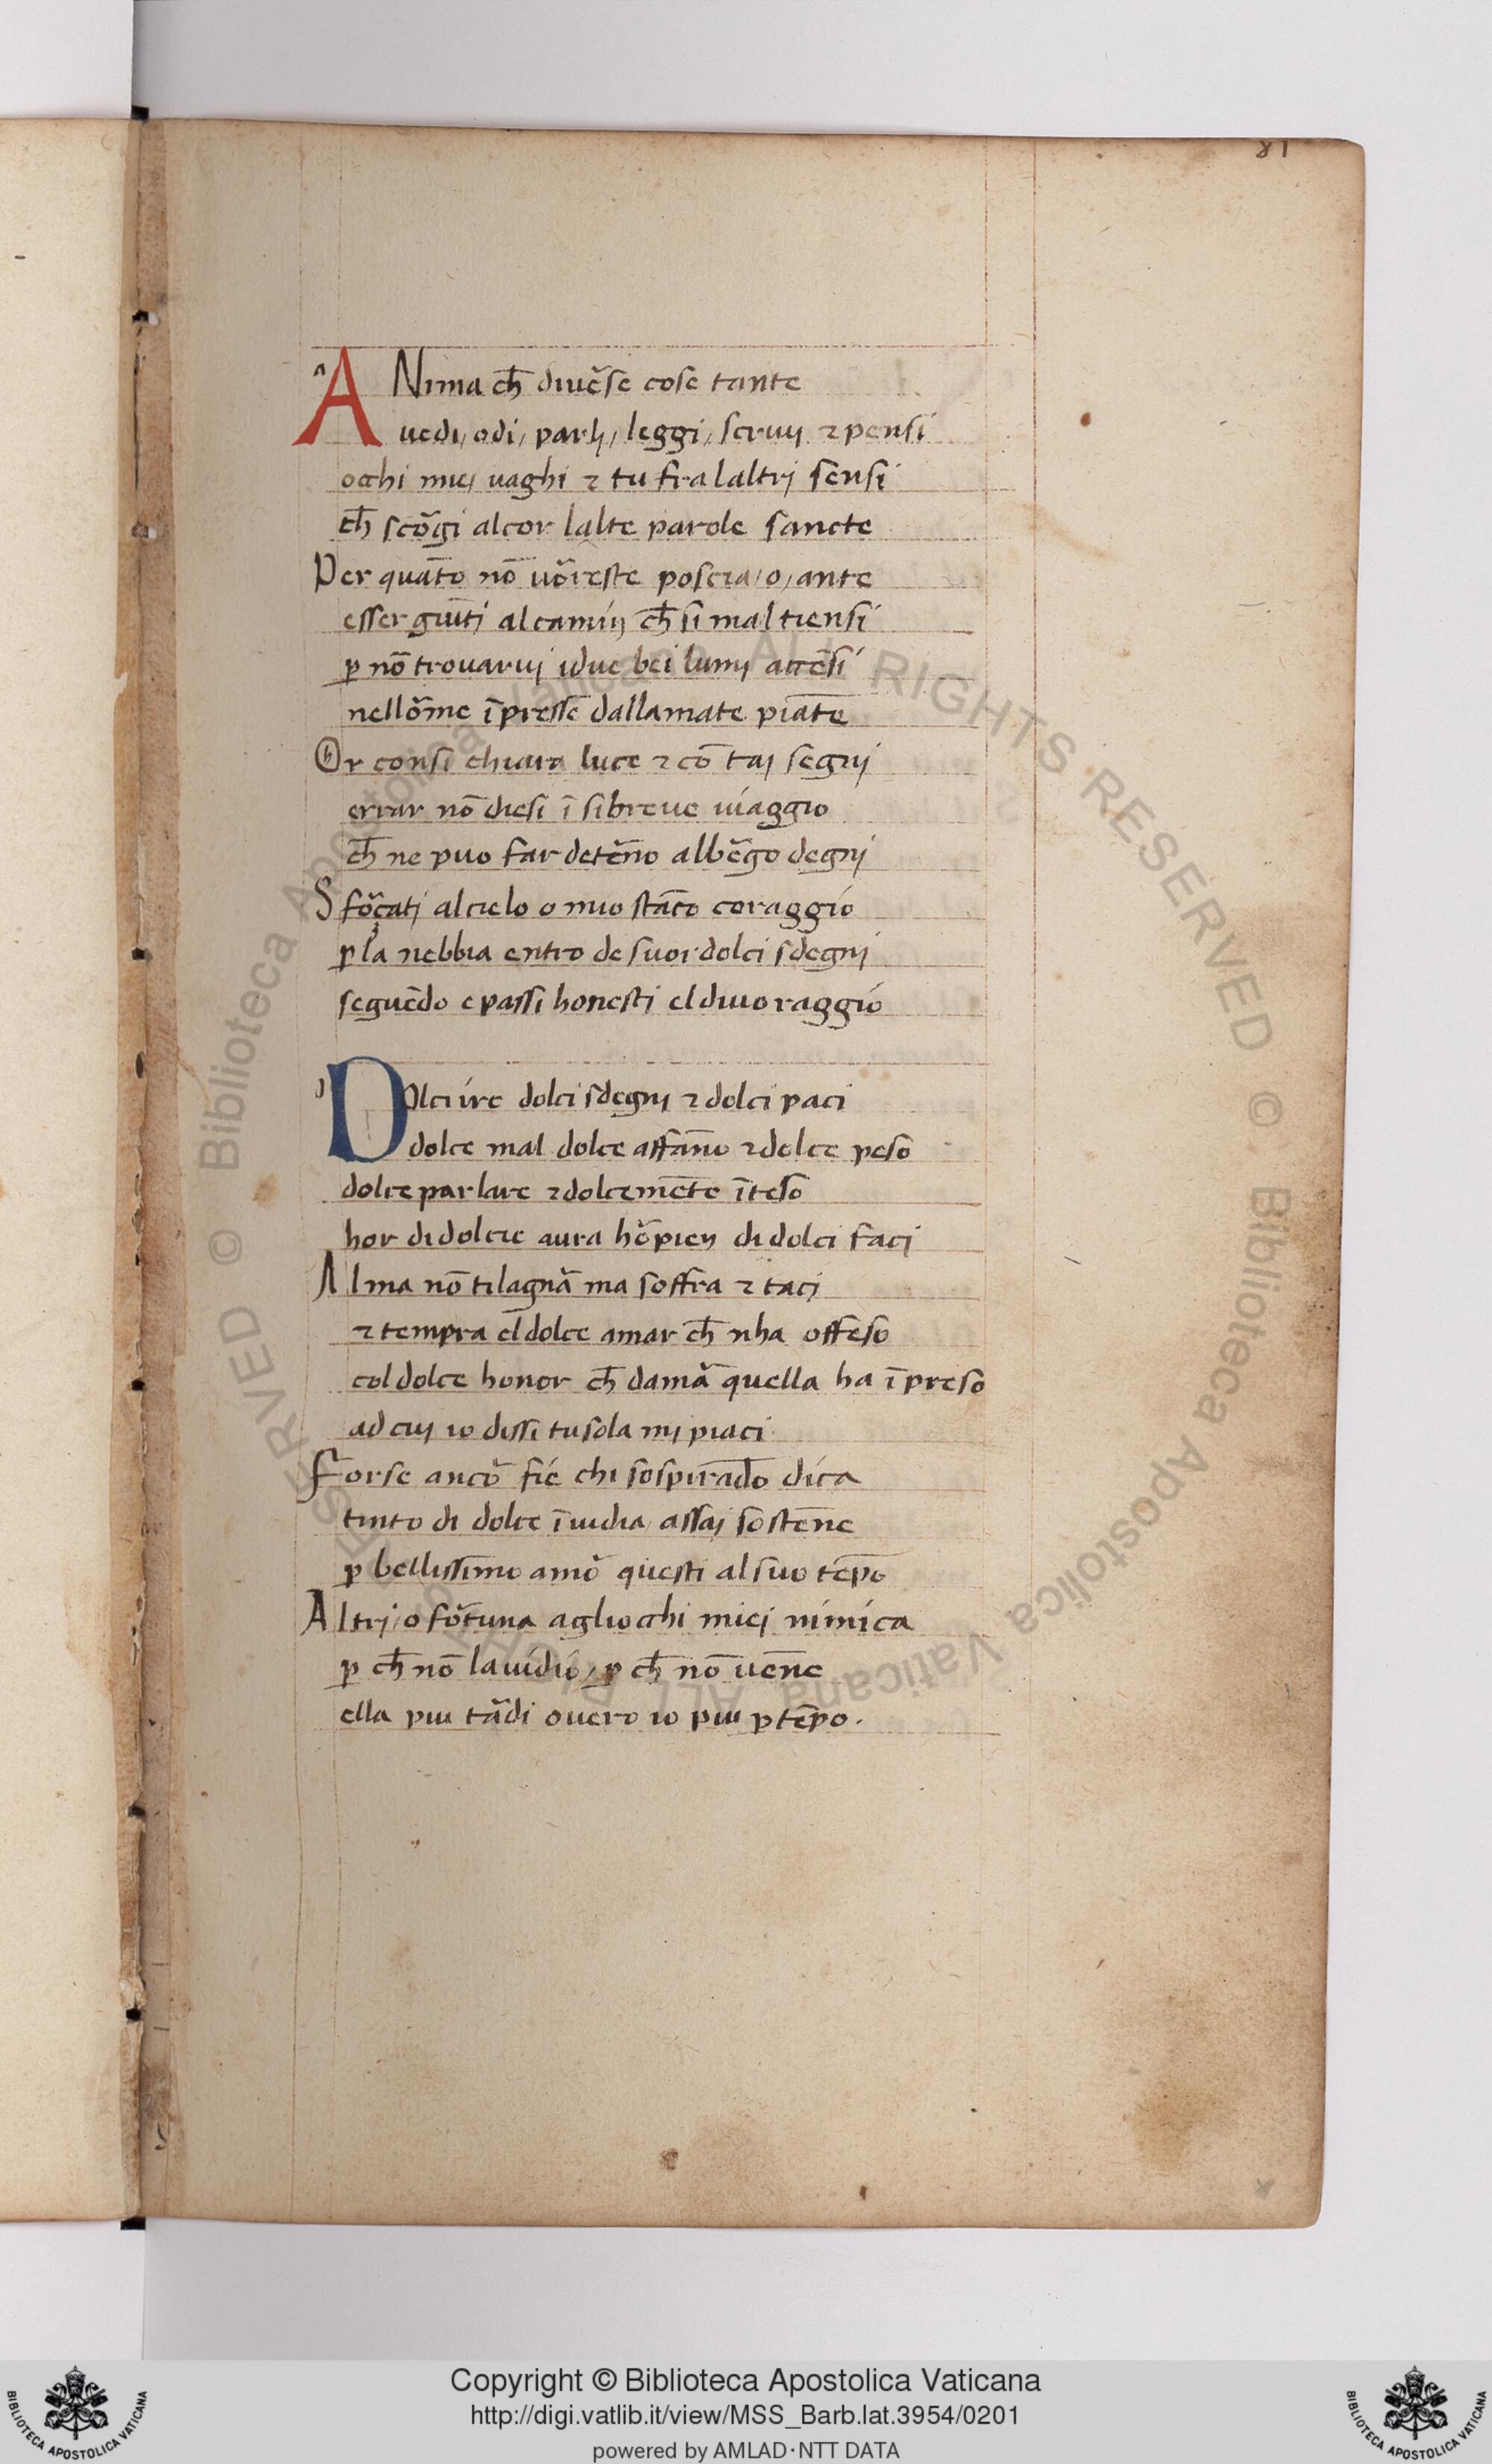 81
ANima ch̄ diuẽse cose tante
uedi, odi, parlj, leggi, scruij ⁊ pensi
occhi miej uaghi ⁊ tu fra laltrj sensi
ch̄ scõgi alcor lalte parole sancte
Per quāto nō uõreste poscia, o, ante
esser giūtj alcamiṇ ch̄ si mal tiensi
ꝑ nō trouaruj idue bei lumj accēsi
nellõme īpresse dallamate piāte
Or consi chiara luce ⁊ cō taj segnj
errar nō diesi ī sibreue uiaggio
ch̄ ne puo far detẽno albẽgo degnj
Sfõçatj alcielo o mio stāco coraggio
ꝑ la nebbia entro de suoi dolci sdegnj
seguēdo e passi honesti el diuo raggio
DOlci ire dolci sdegnj ⁊ dolci paci
dolce mal dolce affāno ⁊ dolce peso
dolce parlare ⁊ dolcemēte īteso
hor di dolcie aura hõ pien di dolci facj
Alma nō ti lagnã ma soffra ⁊ tacj
⁊ tempra el dolce amar ch̄ nha offeso
col dolce honor ch̄ damã quella ha īpreso
ad cuj io dissi tu sola mj piaci
Forse ancõ fie chi sospirādo dica
tinto di dolce īuidia, assaj sostēne
ꝑ bellissimo amõ questi al suo tēpo
Altrj o fõtuna agliocchi miej nimica
ꝑ ch̄ nō la uidio, ꝑ ch̄ nō uēne
ella piu tãdi ouero io piu ꝑ tēpo.
© Biblioteca Apostolica Vaticana ALL RIGHTS RESERVED © Biblioteca Apostolica Vaticana ALL RIGHTS RESERVED
Copyright © Biblioteca Apostolica Vaticana
http://digi.vatlib.it/view/MSS_Barb.lat.3954/0201
powered by AMLAD·NTT DATA
BIBLIOTECA APOSTOLICA VATICANA
BIBLIOTECA APOSTOLICA VATICANA